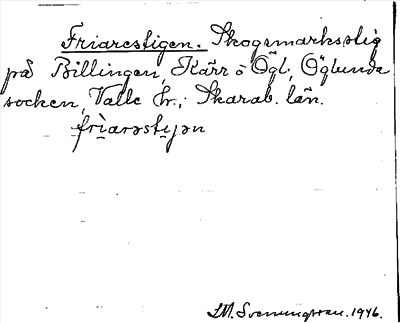 Friarestigen. Skogsmarksstig
på Billingen, Kärr o Ögl., Öglunda
socken, Valle hr., Skarab. län.
frìarəsti̠jən
S.M. Svenungsson. 1946.